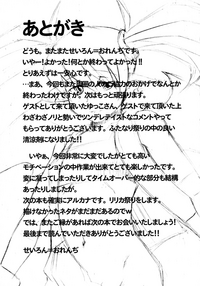 あとがき
どうも、またまたせいろん＝おれんぢです。
いやー!よかった!何とか終わってよかった!!
とりあえずは一安心です。
…まあ、今回も
終わったわけですが、次はもっと頑張ります。
ゲストとして来て頂いたゆっこさん、ゲストで来て頂いた上
わざわざノリと勢いでツンデレテイストなコメントやって
もらってありがとうございます。ふたなり祭りの中の良い
清涼剤になりました!
いやぁ、今回非常に大変でしたがとても高い
モチベーションの中作業が出来てとても楽しかったです。
変に凝ってしまったりしてタイムオーバー的な部分も結構
あったりしましたが。
次の本も確実にアルカナで。リリカ祭りをします。
描けなかったネタがまだまだあるのでｗ
では、またご縁があれば次の本でお会いいたしましょう!
最後まで読んでいただきありがとうございました!!
せいろん＝おれんぢ